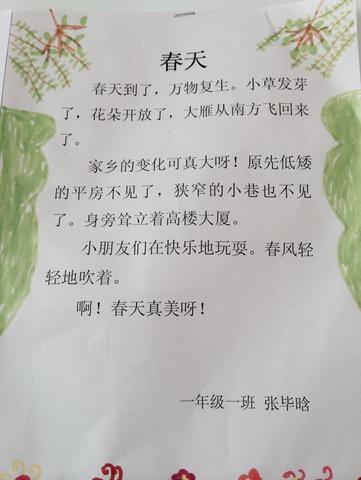 春天
春天到了，万物复生。小草发芽
了，花朵开放了，大雁从南方飞回来
了。
家乡的变化可真大呀！原先低矮
的平房不见了，狭窄的小巷也不见
了。身旁耸立着高楼大厦。
小朋友们在快乐地玩耍。春风轻
轻地吹着。
啊！春天真美呀！
一年级一班 张毕晗